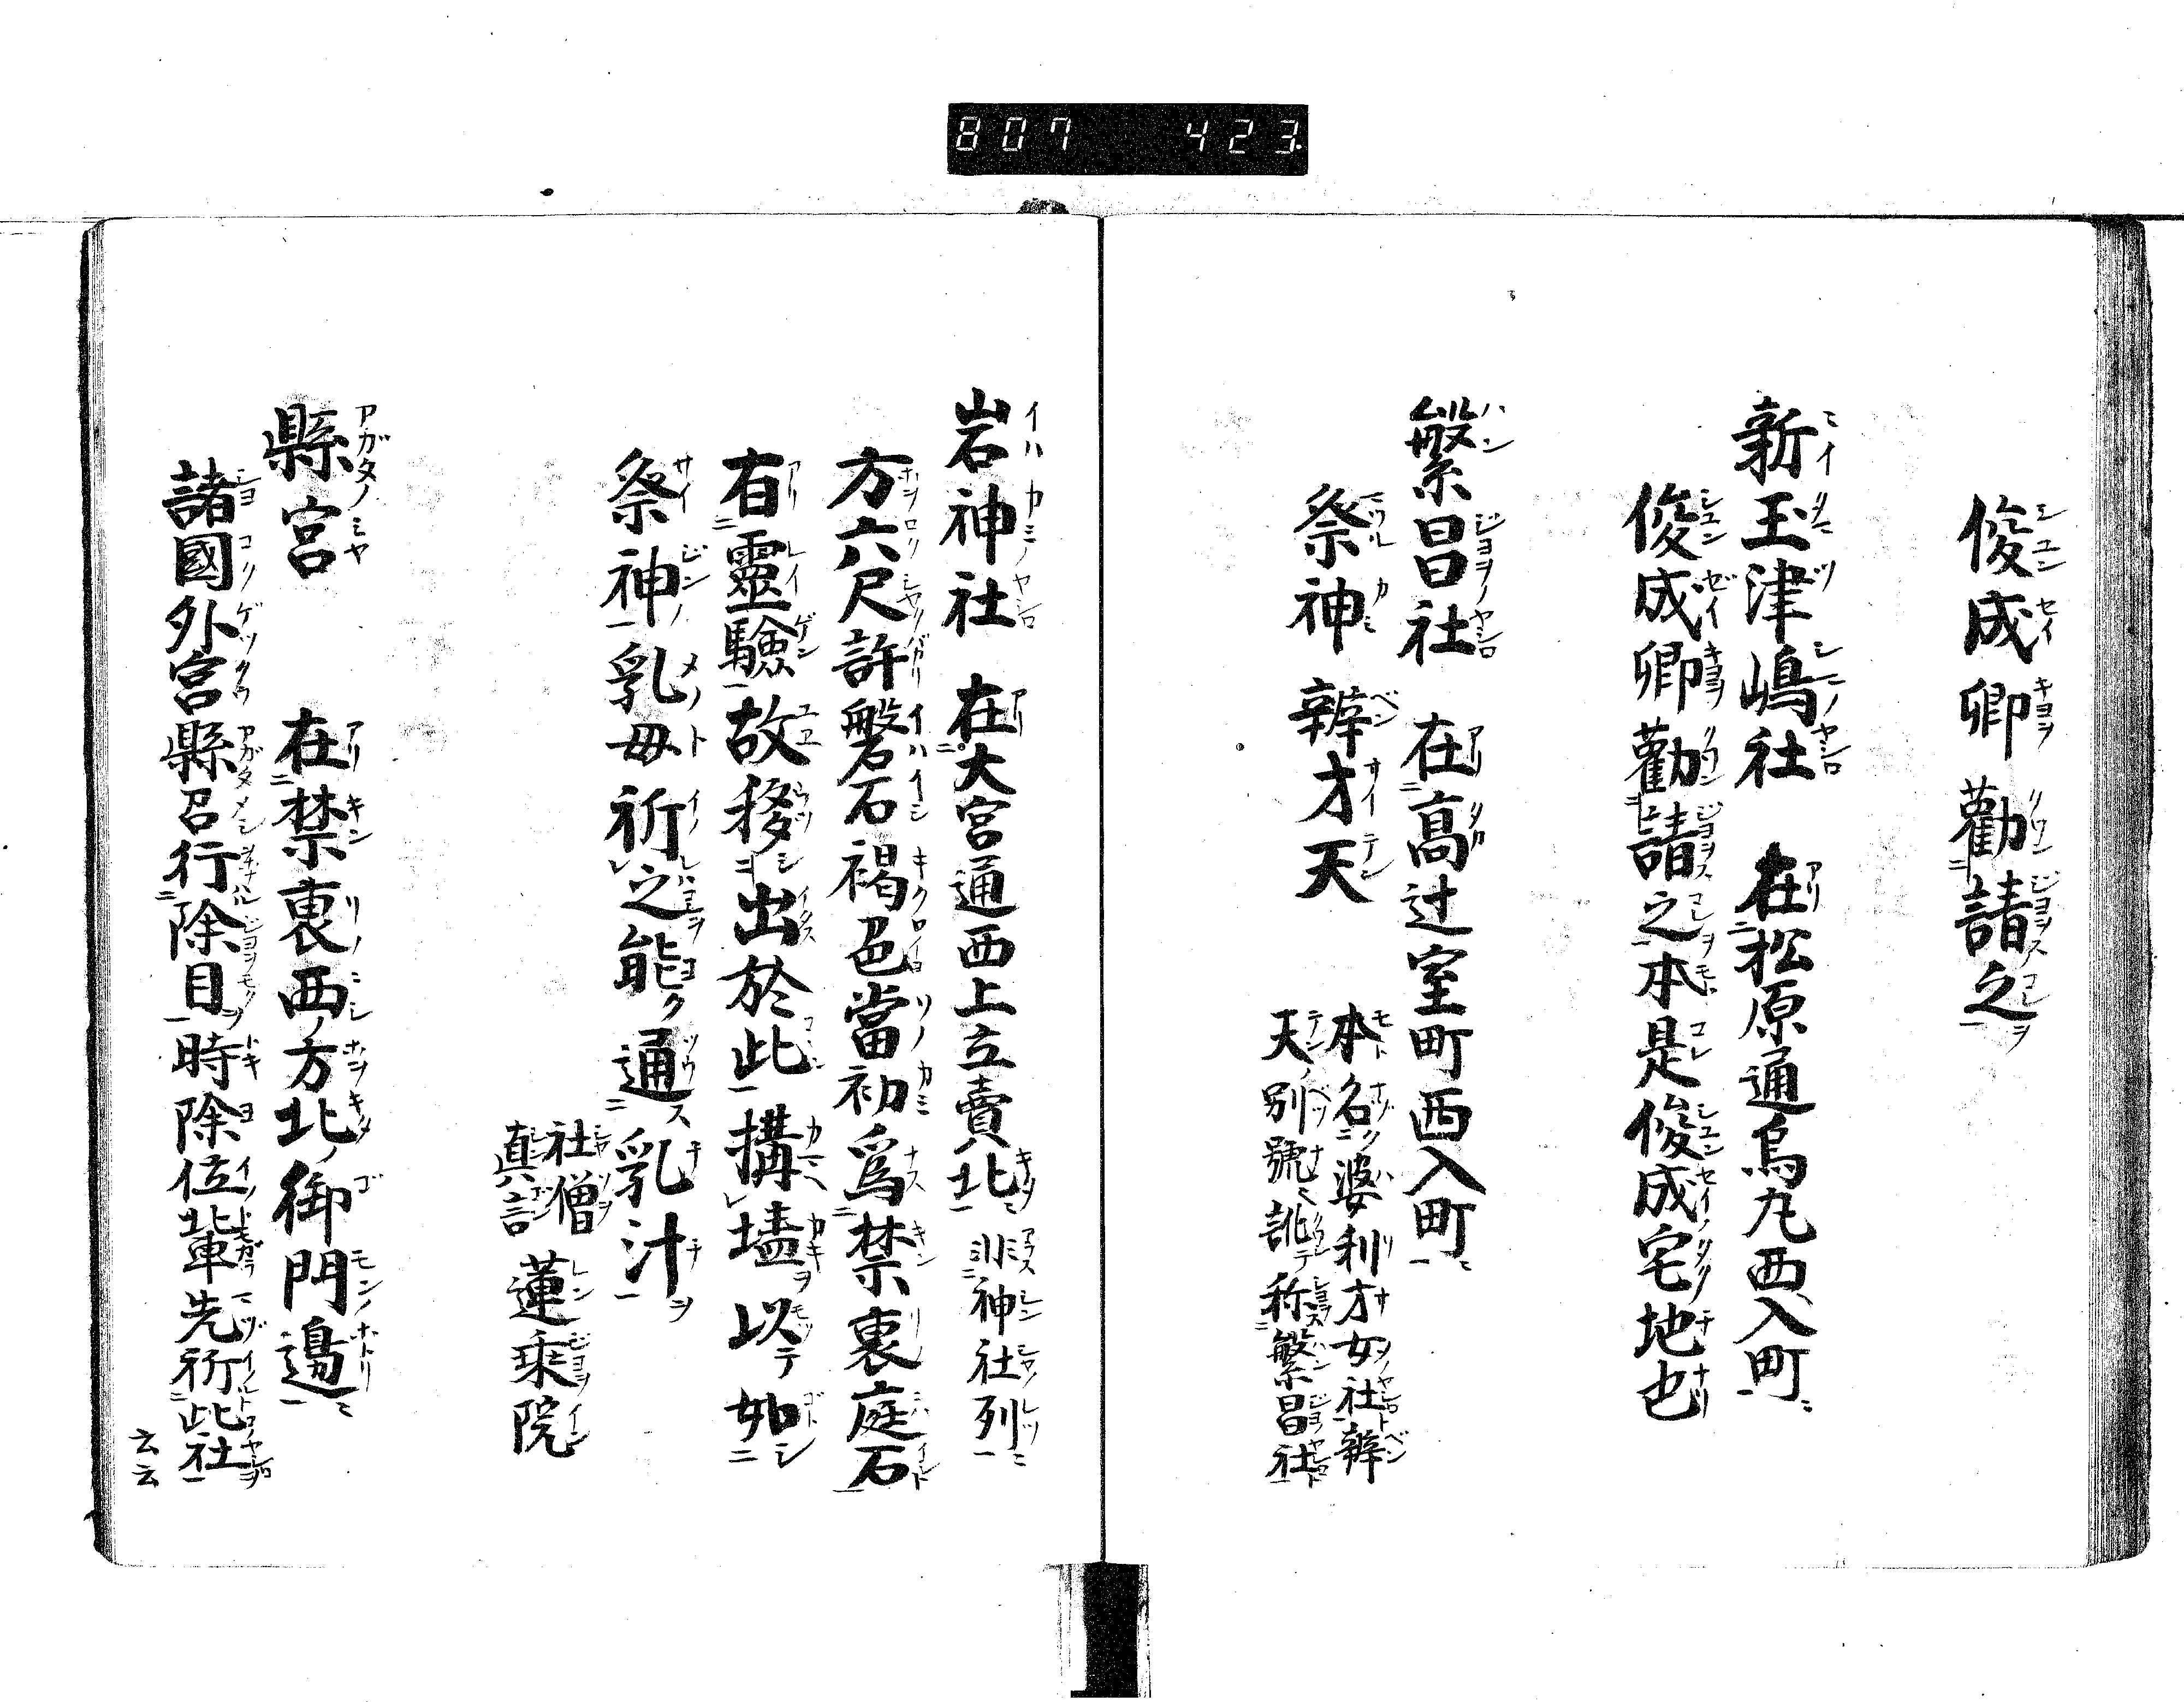 807 423
俊成卿勸請之
新玉津嶋社 在松原通烏丸西入町
俊成卿勸請之本是俊成宅地也
繁昌社 在髙辻室町西入町
祭神 辨才天 本名婆利才女社辨
天別號訛称繁昌社
岩神社 在大宮通西上立賣北 非神社列
方六尺許磐石褐色當初爲禁裏庭石
有靈驗故移出於此構墻以テ如
祭神乳母祈之能ク通ス乳汁ヲ
社僧
真言 蓮乗院
縣宮 在禁裏西ノ方北ノ御門邉
諸國外宮縣召行除目時除位輩先祈此社
云云